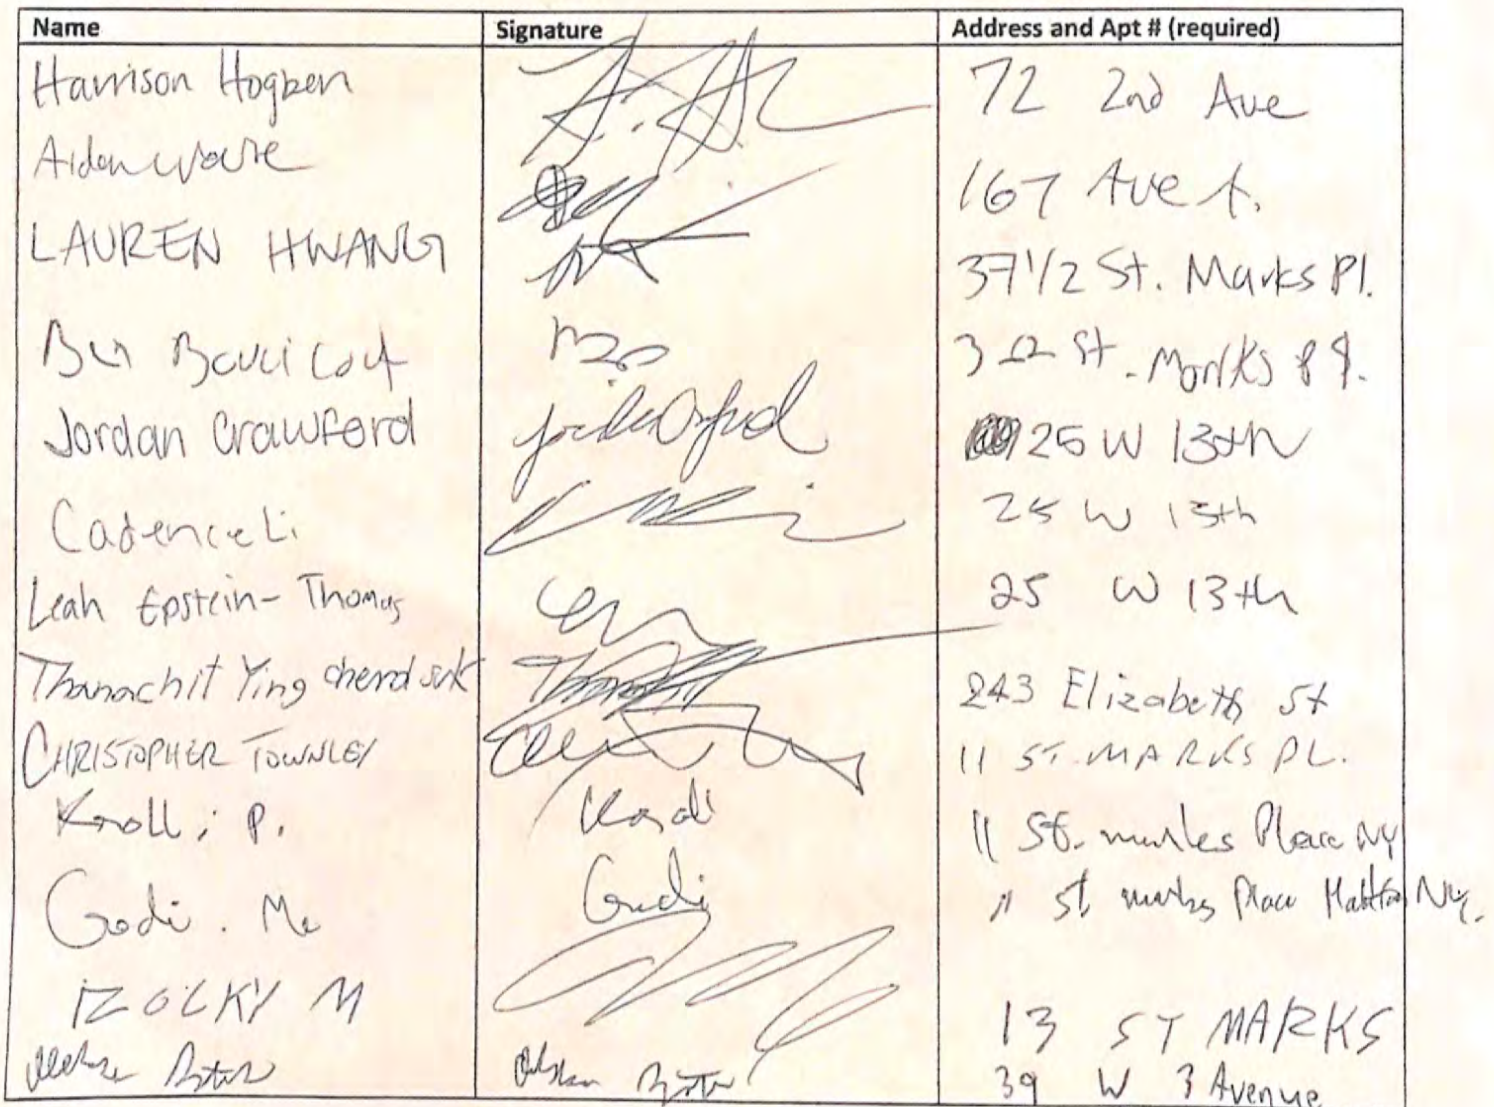 Name Signature Address and Apt # (required)
Harrison Hogben 72 2nd Ave
Aidan 167 Ave A.
LAUREN HWANG 37 1/2 St. Marks Pl.
Ben St.
Jordan Crawford 25 W 13th
Cadence Li 25 W 13th
Leah Epstein-Thomas 25 W 13th
Thanachit 243 Elizabeth St
CHRISTOPHER TOWNLEY 11 ST. MARKS PL.
Kroll, P. 11 St. Place NY
Godi. Gudi 11 St. Place
ROCKY M 13 ST MARKS
39 W 3 Avenue